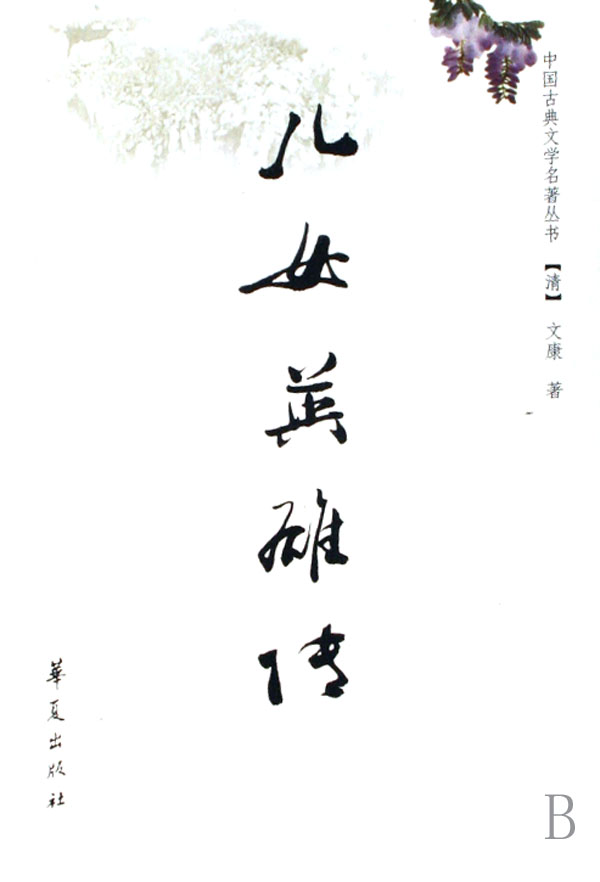 中国古典文学名著丛书【清】 文康 著
儿女英雄传
華夏出版社
B